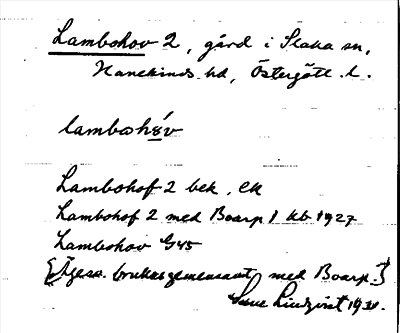 Lambohov 2, gård i Slaka sn,
Hanekinds hd, Östergötl. l.
lambohóv
Lambohof 2 bek, EK
Lambohof 2 med Boarp 1 kb 1927
Lambohov G45
[Äges o. brukas gemensamt med Boarp.]
Sune Lindqvist 1930.